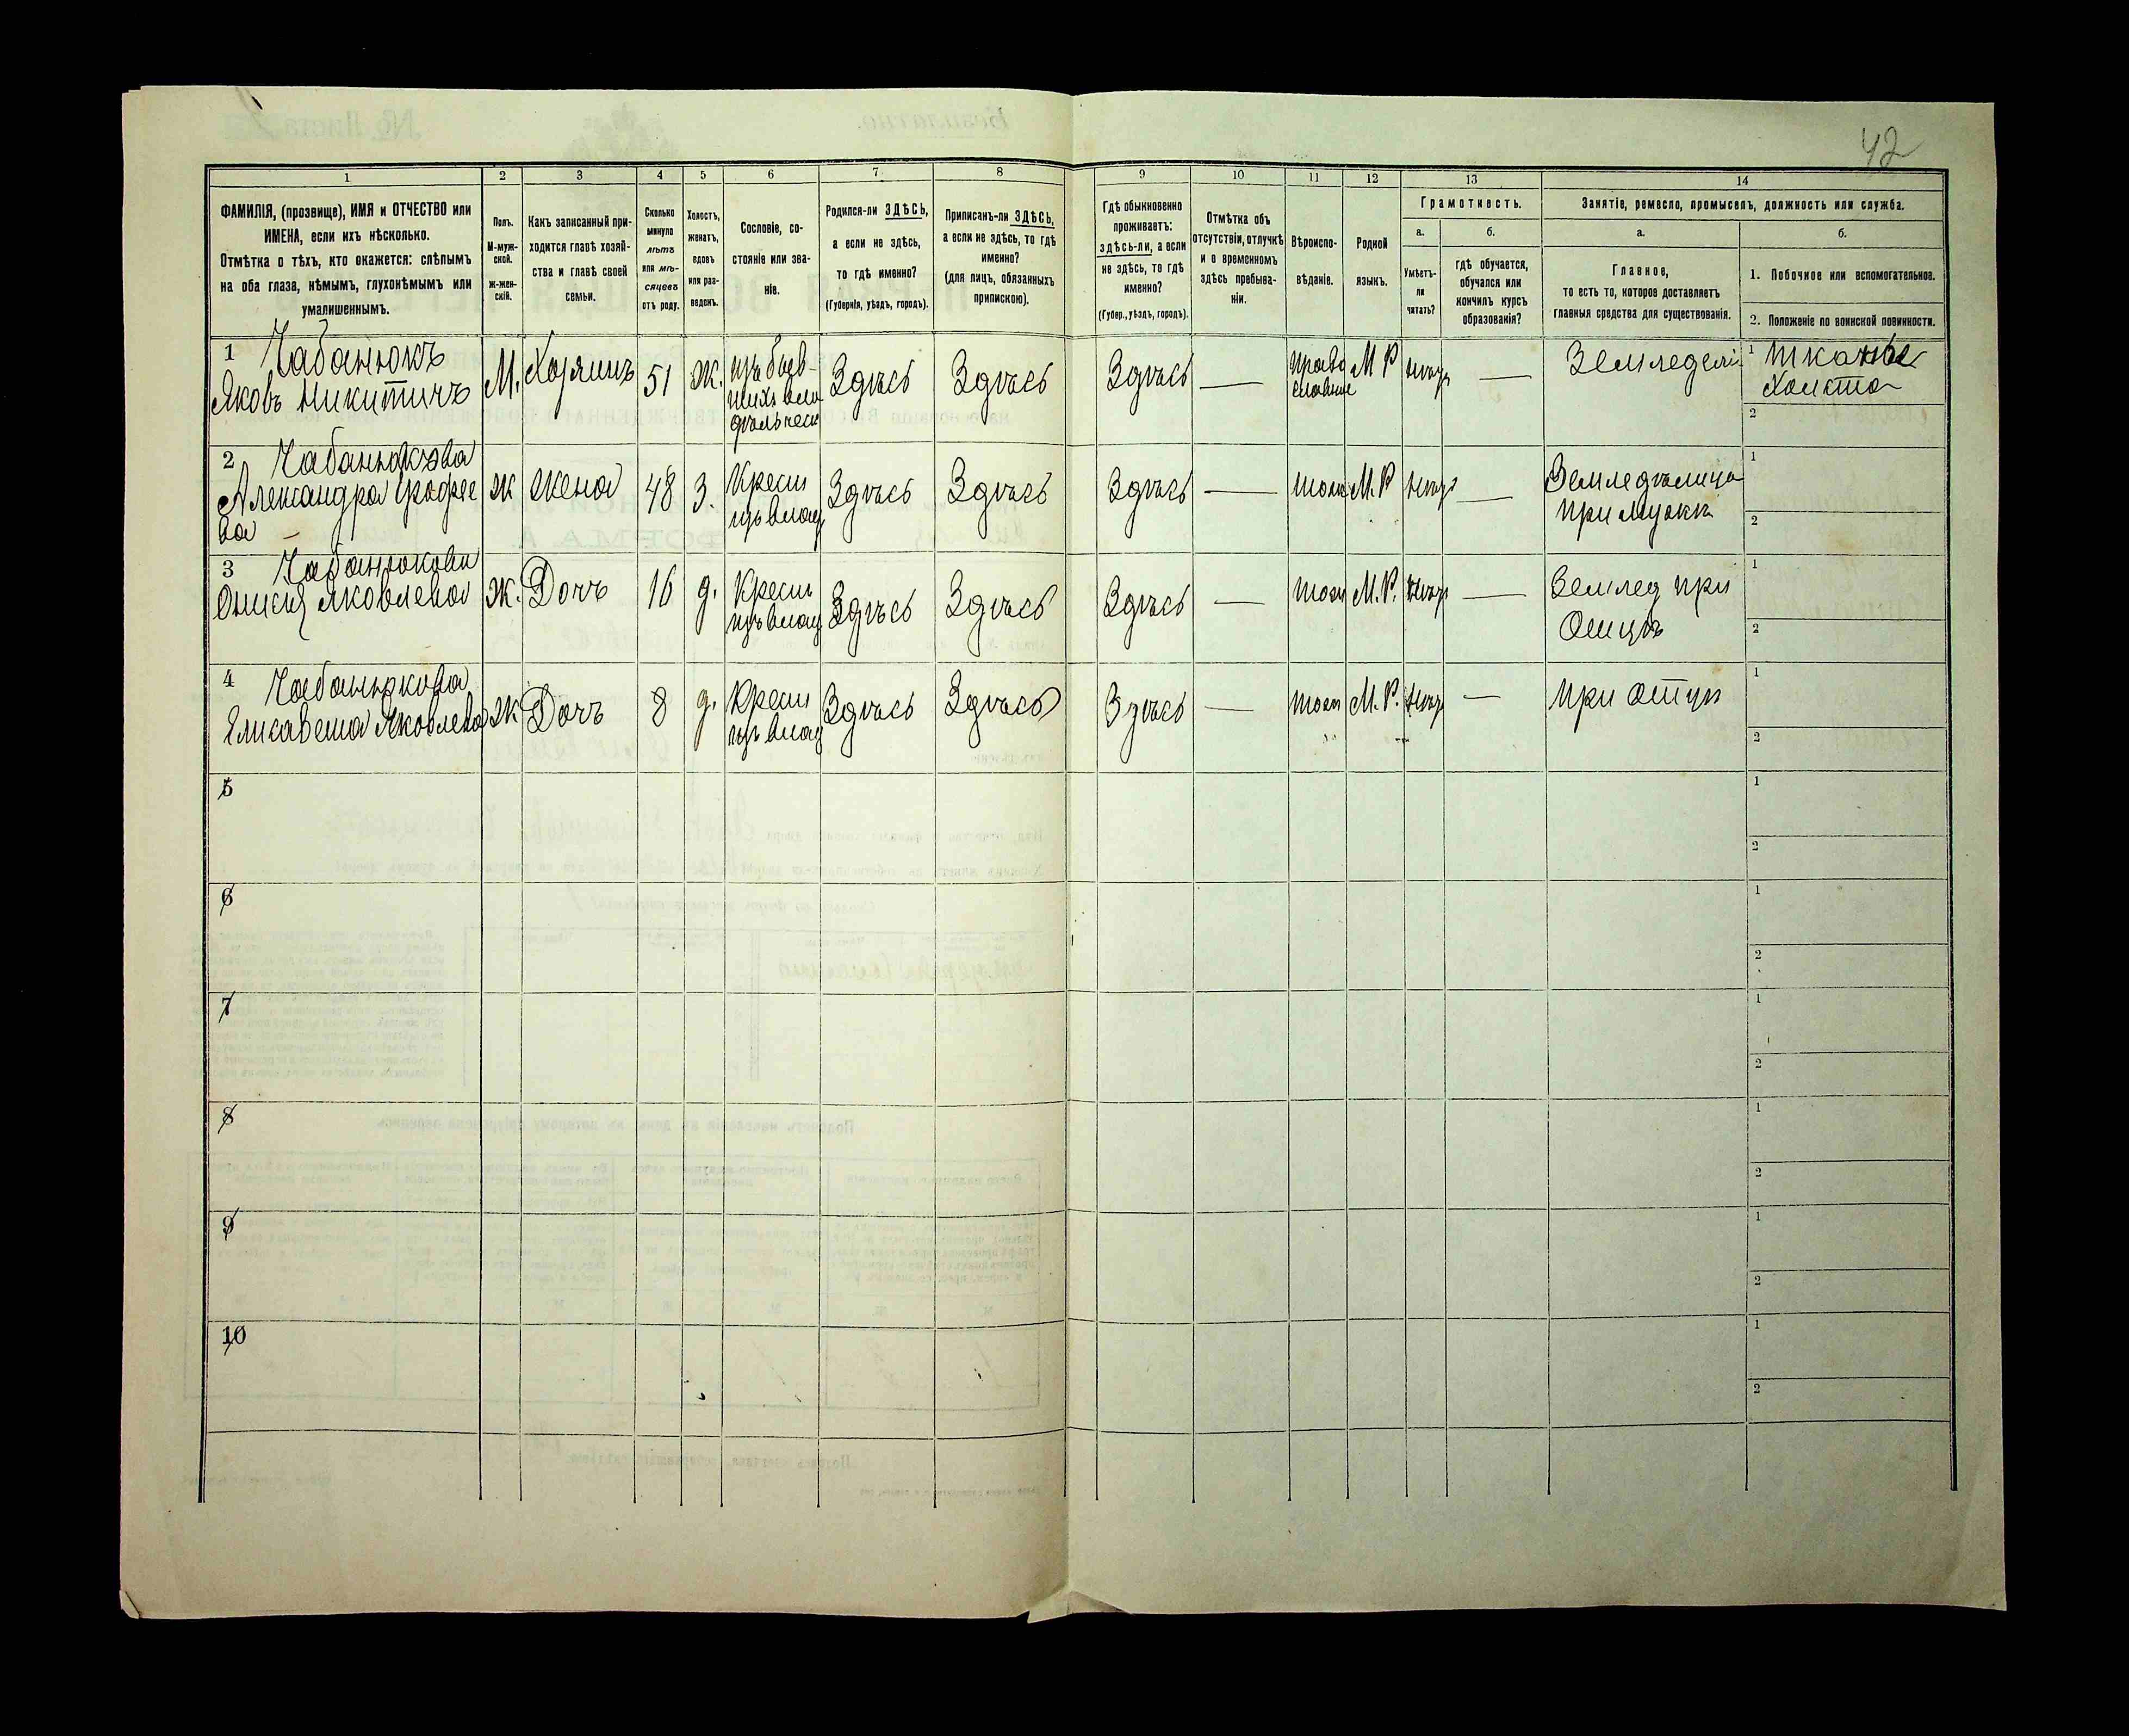 42
1 2 3 4 5 6 7 8 9 10 11 12 13 14
ФАМИЛІЯ, (прозвище), ИМЯ и ОТЧЕСТВО или
ИМЕНА, если ихъ нѣсколько.
Отмѣтка о тѣхъ, кто окажется: слѣпымъ
на оба глаза, нѣмымъ, глухонѣмымъ или
умалишеннымъ.
Полъ.
М-муж-
ской.
ж-жен-
скій.
Какъ записанный при-
ходится главѣ хозяй-
ства и главѣ своей
семьи.
Сколько
минуло
лѣтъ
или мѣ-
сяцевъ
отъ роду.
Холостъ,
женатъ,
вдовъ
или раз-
веденъ.
Сословіе, со-
стояніе или зва-
ніе.
Родился-ли ЗДѢСЬ,
а если не здѣсь,
то гдѣ именно?
(Губернія, уѣздъ, городъ).
Приписанъ-ли ЗДѢСЬ,
а если не здѣсь, то гдѣ
именно?
(для лицъ, обязанныхъ
припискою).
Гдѣ обыкновенно
проживаетъ:
здѣсь-ли, а если
не здѣсь, то гдѣ
именно?
(Губер., уѣздъ, городъ).
Отмѣтка объ
отсутствіи, отлучкѣ
и о временномъ
здѣсь пребыва-
ніи.
Вѣроиспо-
вѣданіе.
Родной
языкъ.
Грамотность.
а.
Умѣетъ-
ли
читать?
б.
гдѣ обучается,
обучался или
кончилъ курсъ
образованія?
Занятіе, ремесло, промыселъ, должность или служба.
а.
Главное,
то есть то, которое доставляетъ
главныя средства для существованія.
б.
1. Побочное или вспомогательное.
2. Положеніе по воинской повинности.
1 Чабанюкъ
Яковъ Никитичъ
М.
Хозяинъ
51
Ж.
изъ быв-
шихъ вла
дѣльческ
Здѣсь
Здѣсь
Здѣсь
—
право
славное
М Р
—
Земледелі
1 тканье
холста
2
2 Чабанюкова
Александра
ва
Ж
жена
48
З.
Крест
изъ влад
Здѣсь
Здѣсь
Здѣсь
—
М. Р
—
Земледѣлица
при мужѣ
1
2
3 Чабанюкова
Яковлева
Ж.
Дочь
16
д.
Крест
изъ влад
Здѣсь
Здѣсь
Здѣсь
—
М. Р.
—
Землед при
Отцѣ
1
2
4 Чабанюкова
Елисавета Яковлева
Ж
Дочь
8
д.
Крест
изъ влад
Здѣсь
Здѣсь
Здѣсь
—
М. Р.
—
при отцѣ
1
2
5
1
2
6
1
2
7
1
2
8
1
2
9
1
2
10
1
2